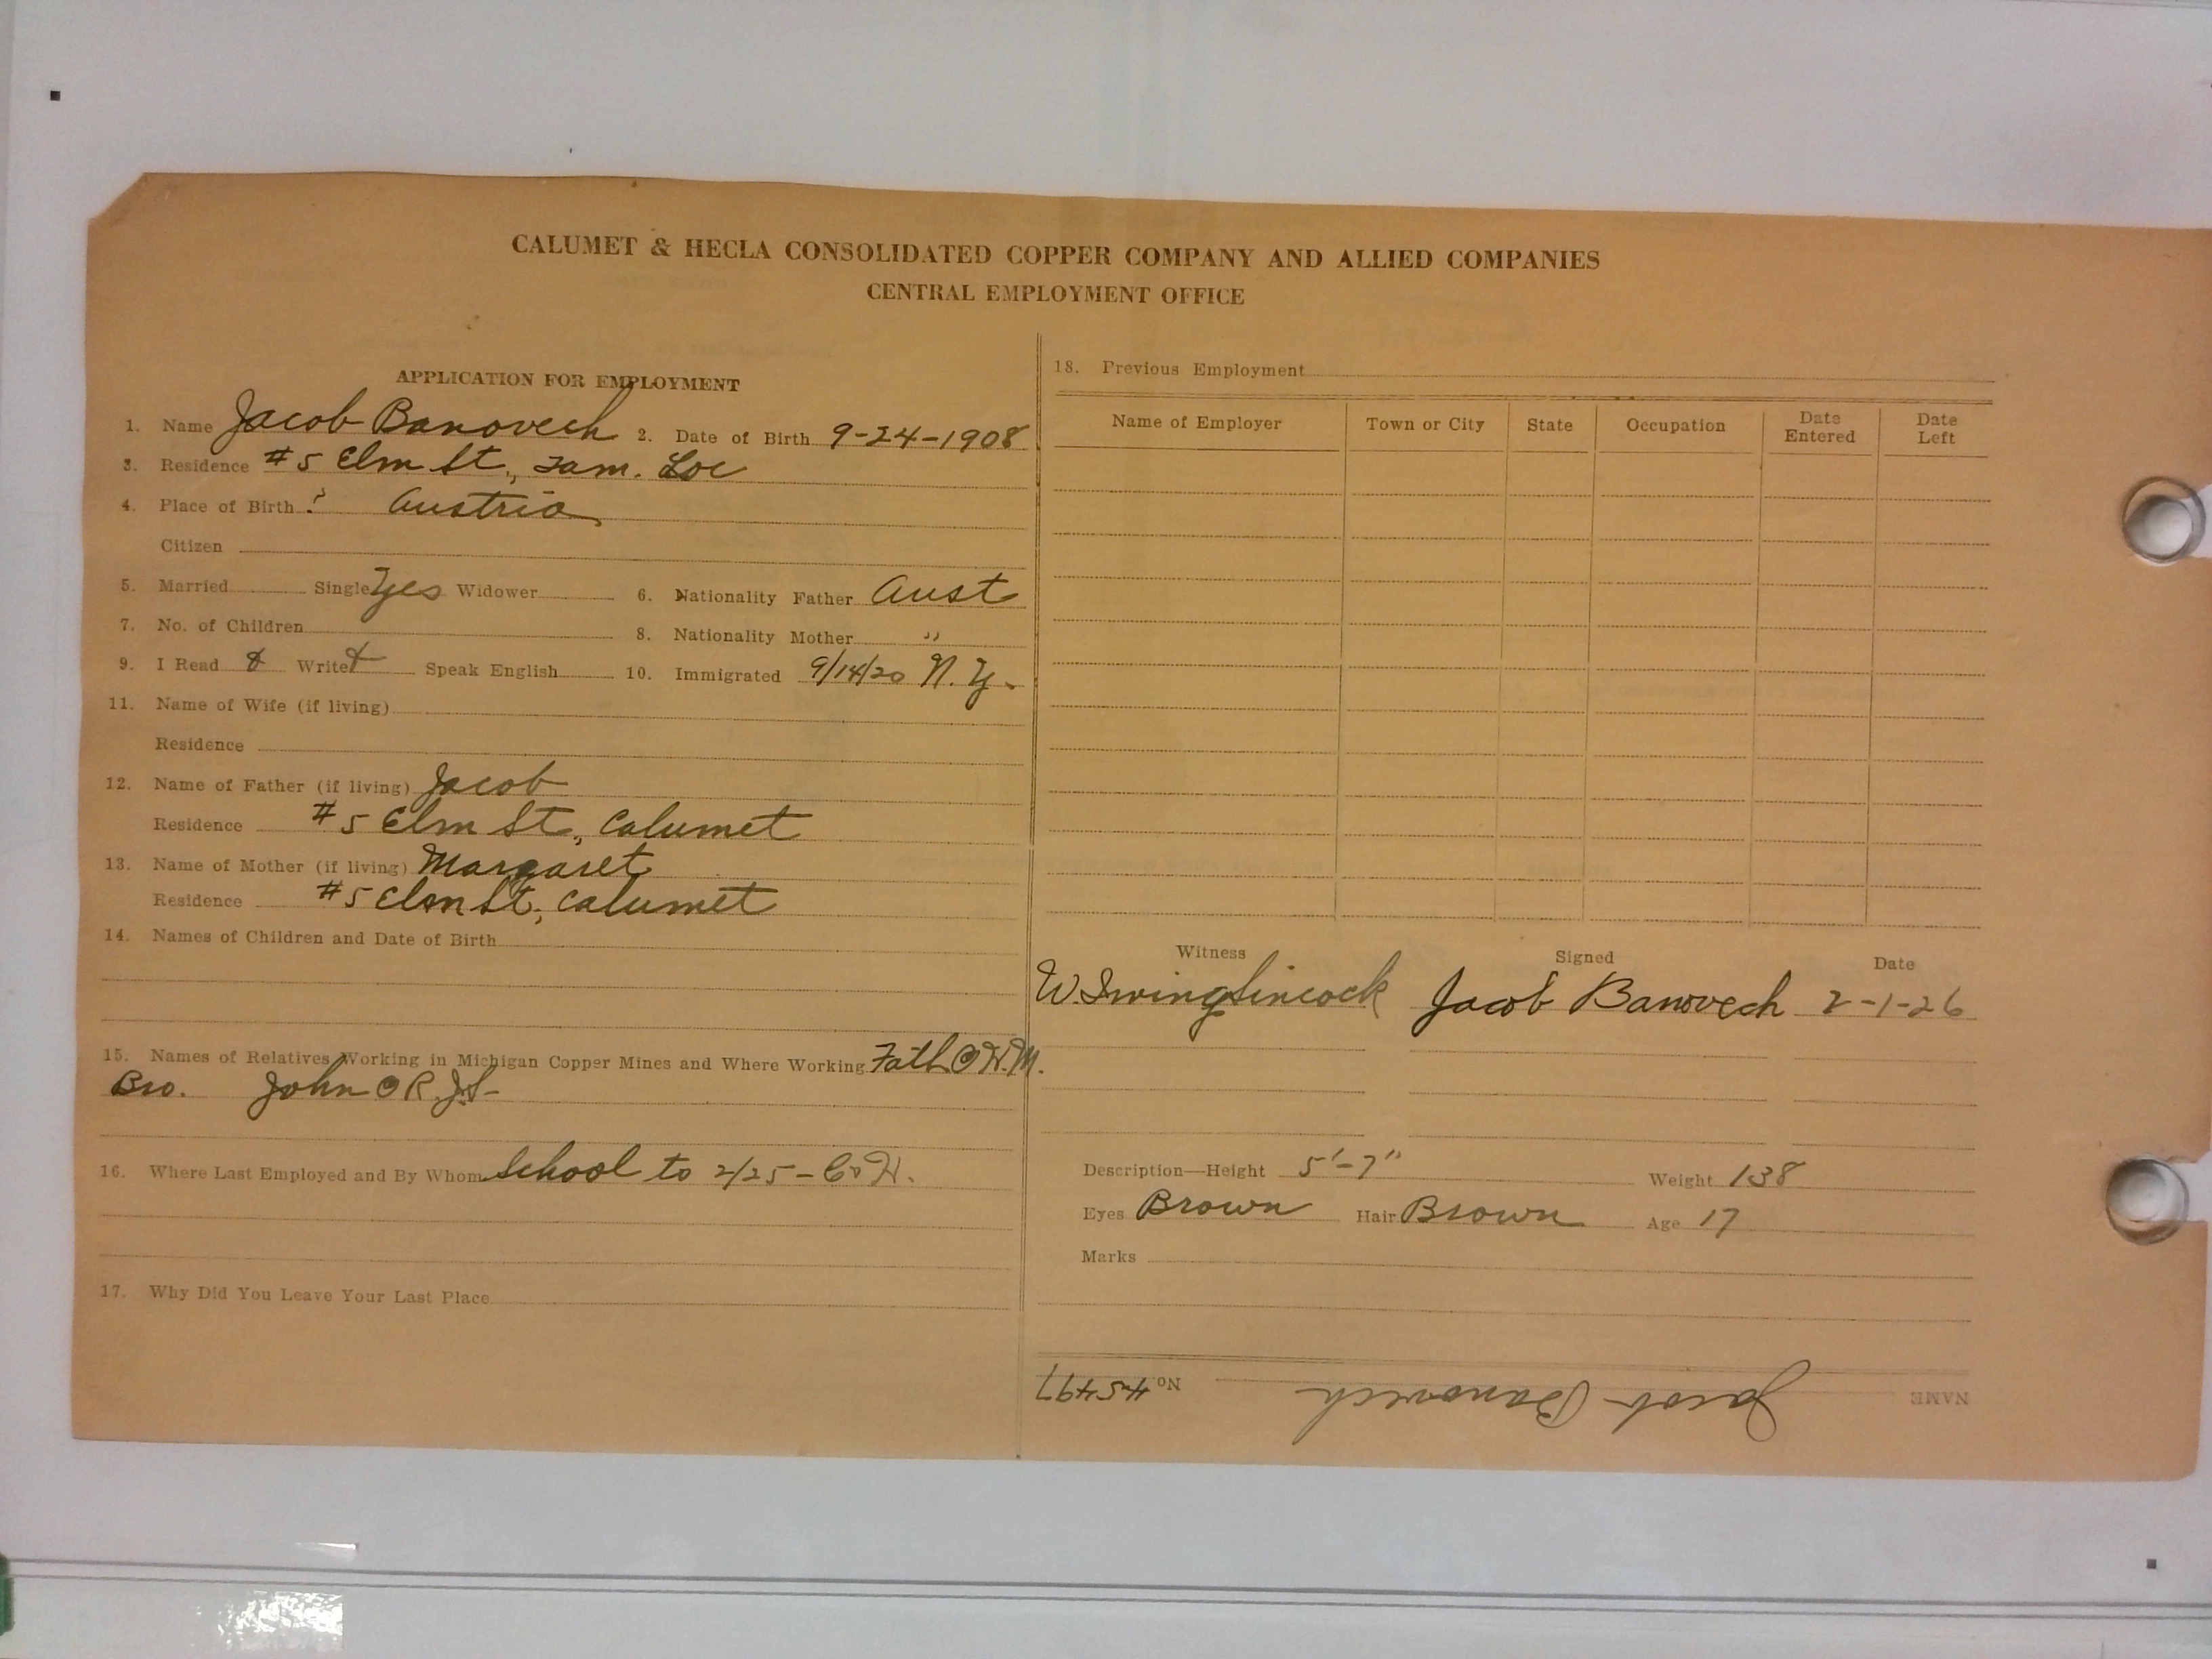 CALUMET & HECLA CONSOLIDATED COPPER COMPANY AND ALLIED COMPANIES
CENTRAL EMPLOYMENT OFFICE
APPLICATION FOR EMPLOYMENT
1. Name Jacob Banovech 2. Date of Birth 9-24-1908
3. Residence #5 Elm St., Tam. Loc
4. Place of Birth ? Austria
Citizen
5. Married Single Yes Widower 6. Nationality Father Aust
7. No. of Children 8. Nationality Mother "
9. I Read & Write & Speak English 10. Immigrated 9/14/20 N.Y.
11. Name of Wife (if living)
Residence
12. Name of Father (if living) Jacob
Residence #5 Elm St., Calumet
13. Name of Mother (if living) Margaret
Residence #5 Elm St., Calumet
14. Names of Children and Date of Birth
15. Names of Relatives Working in Michigan Copper Mines and Where Working Fath
Bro. John
16. Where Last Employed and By Whom School to 2/25 - C&H.
17. Why Did You Leave Your Last Place
18. Previous Employment
Name of Employer Town or City State Occupation Date Entered Date Left
Witness Signed Date
W. Irving Sincock Jacob Banovech 2-1-26
Description—Height 5'-7" Weight 138
Eyes Brown Hair Brown Age 17
Marks
NAME Jacob Banovech No. 45497